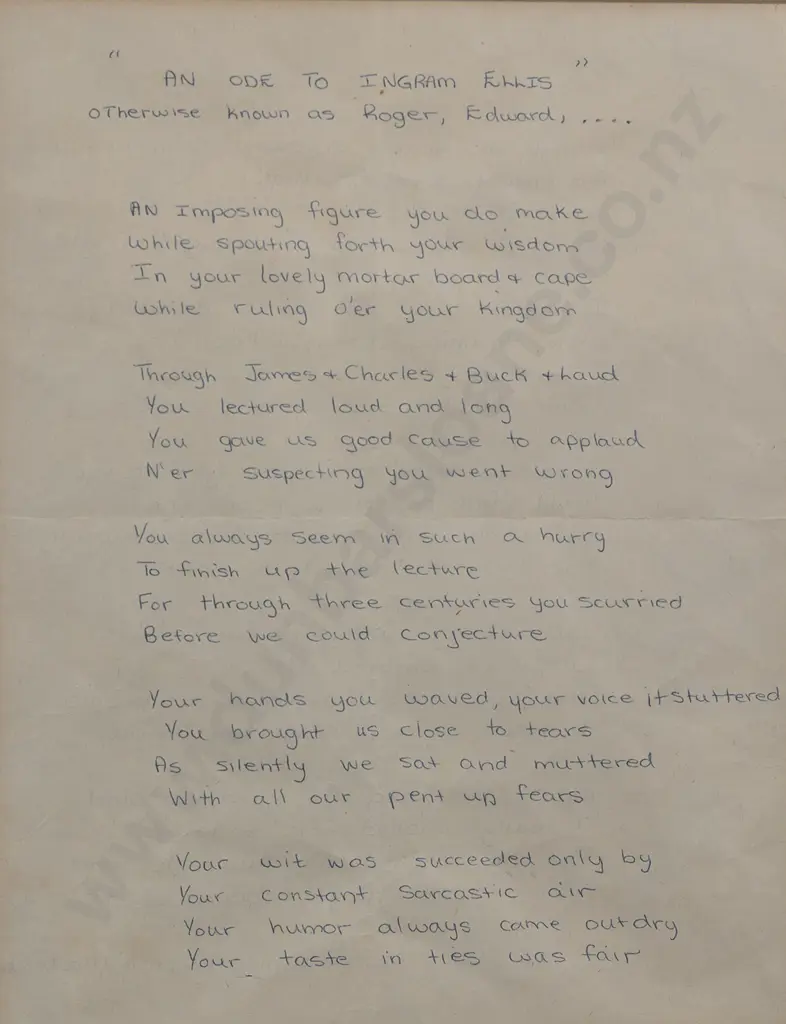 " AN ODE TO INGRAM ELLIS "
otherwise known as Roger, Edward, ....
AN Imposing figure you do make
While spouting forth your wisdom
In your lovely mortar board & cape
While ruling o'er your Kingdom
Through James & Charles & Buck & haud
You lectured loud and long
You gave us good cause to applaud
N'er suspecting you went wrong
You always seem in such a hurry
To finish up the lecture
For through three centuries you scurried
Before we could conjecture
Your hands you waved, your voice it stuttered
You brought us close to tears
As silently we sat and muttered
With all our pent up fears
Your wit was succeeded only by
Your constant Sarcastic air
Your humor always came out dry
Your taste in ties was fair